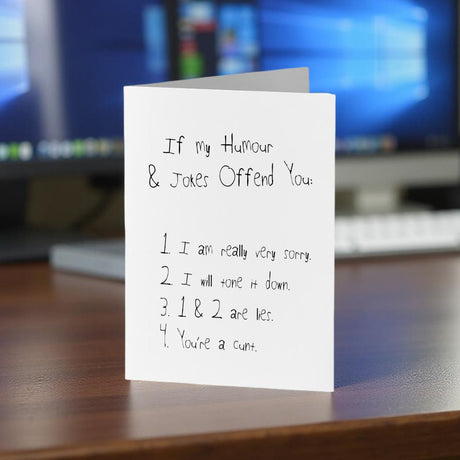 If my Humour
& Jokes Offend You:
1 I am really very sorry.
2 I will tone it down.
3. 1 & 2 are lies.
4. You're a cunt.